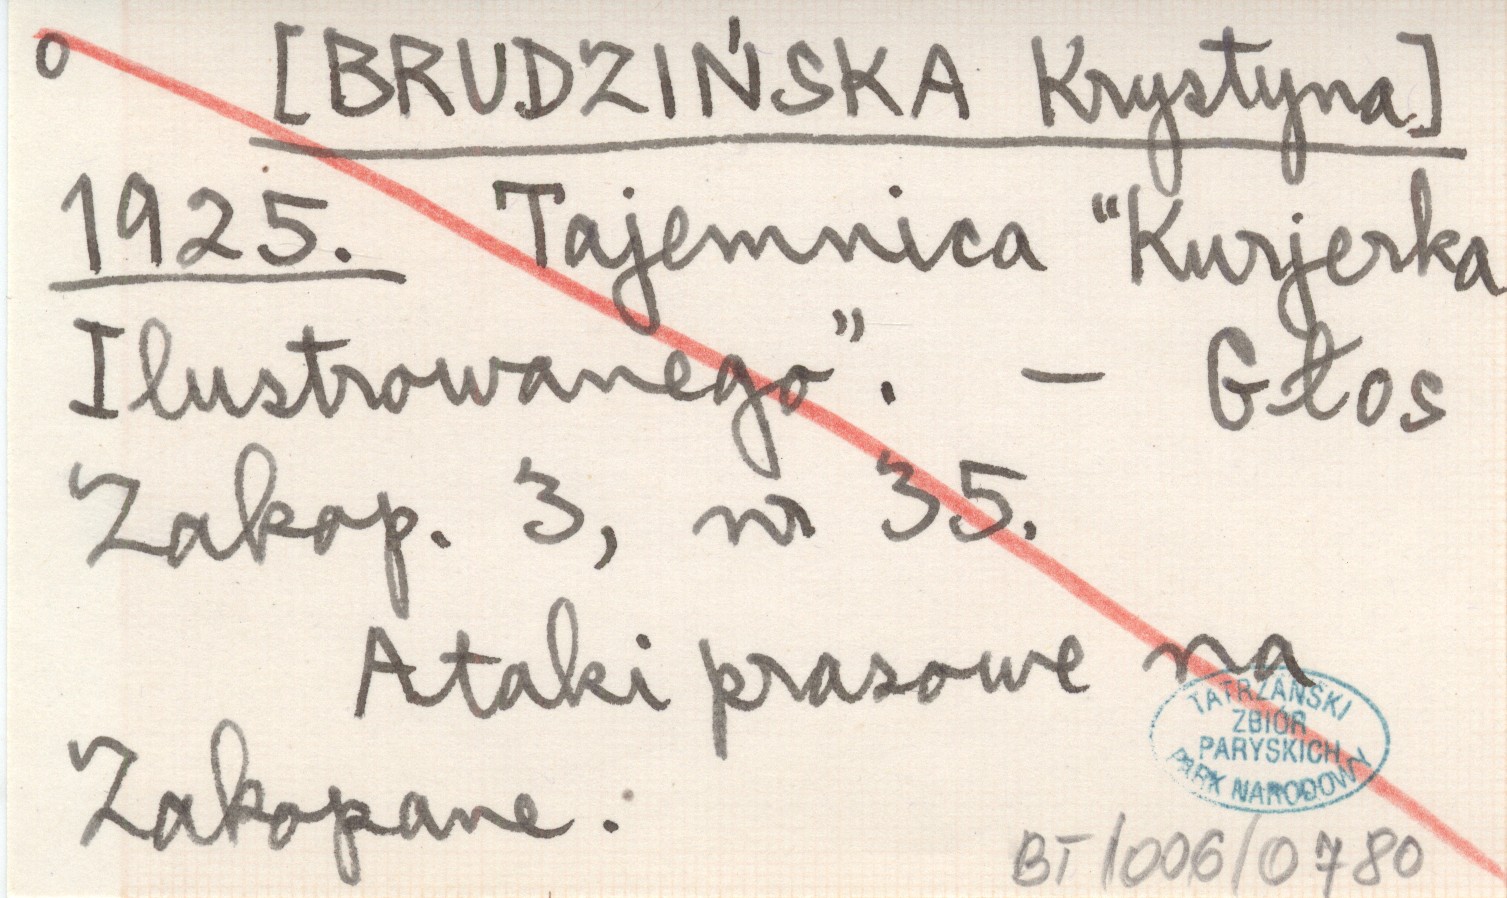 o [BRUDZIŃSKA Krystyna]
1925. Tajemnica “Kurjerka
Ilustrowanego”. — Głos
Zakop. 3, nr 35.
Ataki prasowe na
Zakopane.
TATRZAŃSKI
ZBIÓR
PARYSKICH
PARK NARODOWY
BT/006/0780